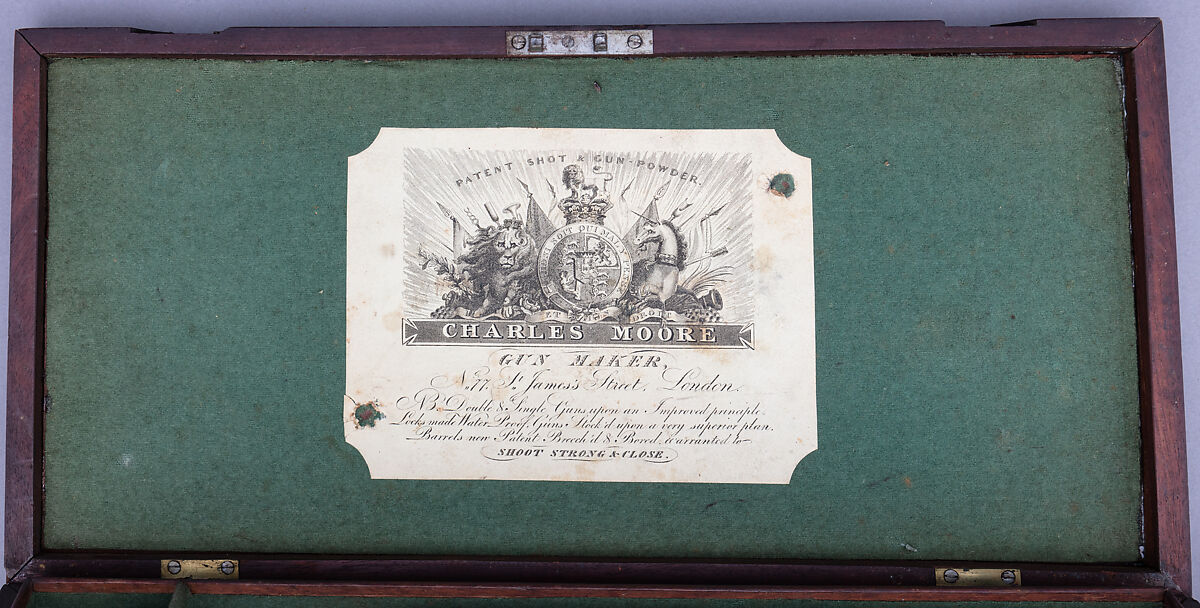 PATENT SHOT & GUN-POWDER.
SOIT QUI MAL Y
ET
CHARLES MOORE
GUN MAKER,
No. 77, St. James's Street, London.
NB. Double & Single Guns upon an Improved principle.
Locks made Water Proof, Guns Stock'd upon a very superior plan,
Barrels new Patent Breech'd & Bored, warranted to
SHOOT STRONG & CLOSE.